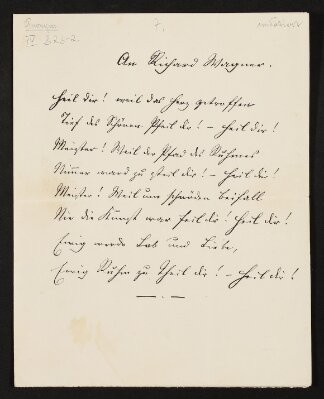 IV
7.
An Richard Wagner.
Heil dir! weil das Herz getroffen
Tief des Schönen Pfeil dir! – Heil dir!
Meister! Weil der Pfad des Ruhmes
Nimmer ward zu steil dir! – Heil dir!
Meister! Weil um schnöden Beifall
Nie die Kunst war feil dir! Heil dir!
Ewig werde Lob und Liebe,
Ewig Ruhm zu Theil dir! – Heil dir!